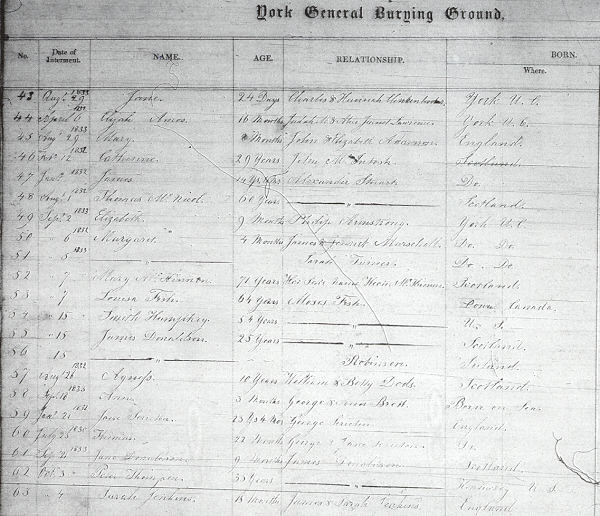 York General Burying Ground,
No. Date of Interment. NAME. AGE. RELATIONSHIP. BORN. Where.
43 Augt 29 1833 Jane 24 Days Charles & Hannah York U. C.
44 April 6 Elijah Amos 16 Months York U. C.
45 Augt 29 1833 Mary Months John & Elizabeth England
46 12 1832 Catherine 29 Years John McIntosh Scotland
47 1832 James Years Alexander Stewart Do
48 Augt 1 1832 Thomas McNicol 60 Years " Scotland
49 Sept 2 1832 Elizabeth 9 Months Philip Armstrong York U. C.
50 " 6 1832 Margaret 4 Months James & Marschall Do. Do.
51 " 5 1833 " Sarah Turner Do. Do.
52 " 7 Mary McKinnon 71 Years Her Son's name McKinnon Scotland
53 " 7 Louisa Fish 64 Years Moses Fish Canada
54 " 15 Smith Humphry 54 Years " U. S.
55 " 15 James Donaldson 25 Years " Scotland
56 " 15 " Robinson Ireland
57 Augt 26 1832 Agness 10 Years William & Betty Dods Scotland
58 Sept 18 1833 Ann 5 Months George & Brett Born on Sea
59 Jany 21 Jane 25 Yrs 4 Mos George England
60 July 25 1835 Thomas 22 Months George & Jane Do
61 Sept 2 1833 Jane 9 Months James Scotland
62 Oct 3 Thompson 35 Years " U. S.
63 " 4 Sarah Jenkins 18 Months James & Sarah Jenkins England